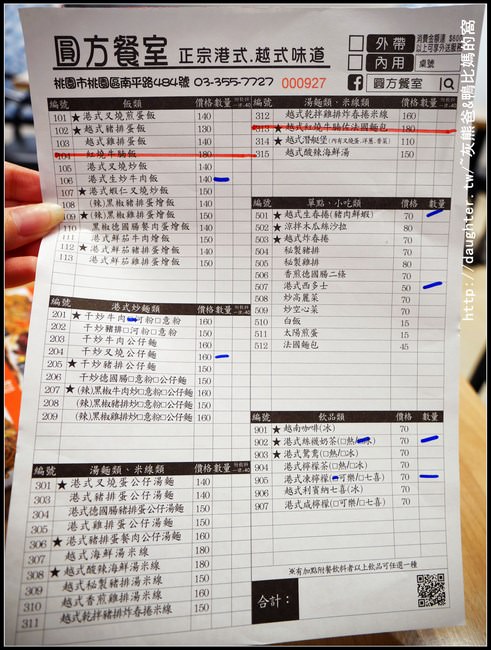 圓方餐室 正宗港式.越式味道
桃園市桃園區南平路484號 03-355-7727 000927
外帶
內用 桌號
圓方餐室
編號 飯類 價格 數量
101 ★港式叉燒煎蛋飯 140
102 ★越式豬排蛋飯 130
103 越式雞排蛋飯 140
104 紅燒牛腩飯 180
105 ★港式叉燒炒飯 140
106 港式生炒牛肉飯 140
107 ★港式蝦仁叉燒炒飯 150
108 (辣)黑椒豬排蛋燴飯 140
109 ★(辣)黑椒雞排蛋燴飯 150
110 黑椒德國腸餐肉蛋燴飯 140
111 港式鮮茄牛肉燴飯 150
112 ★港式鮮茄豬排蛋燴飯 140
113 港式鮮茄雞排蛋燴飯 150
編號 港式炒麵類 價格 數量
201 ★干炒牛肉□河粉□意粉 160
202 干炒豬排□河粉□意粉 150
203 干炒牛肉公仔麵 160
204 干炒叉燒公仔麵 160
205 ★干炒豬排公仔麵 150
206 干炒德國腸□意粉□公仔麵
207 ★(辣)黑椒牛肉炒□意粉□公仔麵 160
208 (辣)黑椒豬排炒□意粉□公仔麵 150
209 (辣)黑椒雞排炒□意粉□公仔麵 160
編號 湯麵類、米線類 價格 數量
301 ★港式叉燒蛋公仔湯麵 140
303 港式豬排蛋公仔湯麵 140
304 港式德國腸排蛋公仔湯麵 150
305 港式雞排蛋公仔湯麵 150
306 ★港式豬排蛋餐肉公仔湯麵 150
307 越式海鮮湯米線 180
308 ★越式酸辣海鮮湯米線 180
309 越式秘製豬排湯米線 150
310 越式香煎雞排湯米線 160
311 越式乾拌豬排炸春捲米線 150
編號 湯麵類、米線類 價格 數量
312 越式乾拌雞排炸春捲米線 160
313 ★越式紅燒牛腩佐法國麵包 180
314 ★越式潛艇堡(內有叉燒.洋蔥.香菜) 110
315 越式酸辣海鮮湯 150
編號 單點、小吃類 價格 數量
501 ★越式生春捲(豬肉鮮蝦) 70
502 ★涼拌木瓜絲沙拉 80
503 ★越式炸春捲 70
504 秘製豬排 70
505 秘製雞排 80
506 香煎德國腸二條 70
507 港式西多士 50
508 炒高麗菜 70
509 炒空心菜 70
510 白飯 15
511 太陽煎蛋 15
512 法國麵包 45
編號 飲品類 價格 數量
901 ★越南咖啡(冰) 70
902 ★港式絲襪奶茶(□熱/□冰) 70
903 ★港式鴛鴦(□熱/□冰) 70
904 港式檸檬茶(□熱/□冰) 70
905 港式凍檸檬(□可樂/□七喜) 70
906 越式利賓納七喜(冰) 70
907 港式咸檸檬(□可樂/□七喜) 70
※有加點附餐飲料者以上飲品可任選一種
合計：
http://daughter.tw/~灰熊爸&鴨比媽的窩